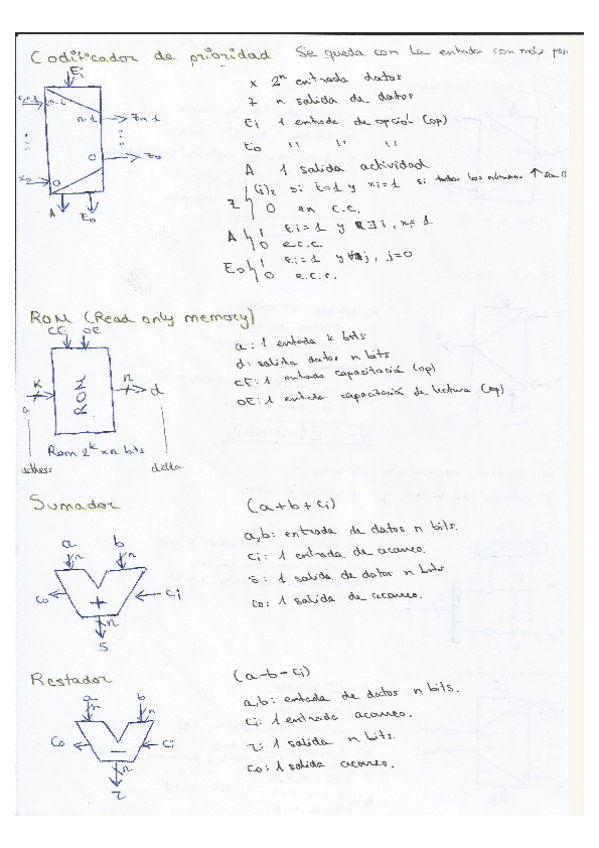 Codificador de prioridad Se queda con la entrada con más
Ei
x 2^n entrada datos
z n salida de datos
Ei 1 entrada de opción (op)
Eo " " "
A 1 salida actividad
z { (i)2 si E=1 y xi=1 si todos los números ↑ son
0 en c.c.
A { 1 Ei=1 y ∃ i, xi=1
0 e.c.c.
Eo { 1 Ei=1 y ∀j, j=0
0 e.c.c.
n-1
n-1 Zn-1
0 Z0
x0 0
A Eo
ROM (Read only memory)
CE OE
k ROM n d
a
Rom 2^k x n bits
a: 1 entrada k bits
d: salida datos n bits
CE: 1 entrada capacitación (op)
OE: 1 entrada capacitación de lectura (op)
Sumador (a+b+ci)
a b
n n
Co + Ci
n
S
a,b: entrada de datos n bits.
ci: 1 entrada de acarreo.
s: 1 salida de datos n bits
co: 1 salida de acarreo.
Restador (a-b-ci)
a b
n n
Co - Ci
n
r
a,b: entrada de datos n bits.
ci: 1 entrada acarreo.
r: 1 salida n bits.
co: 1 salida acarreo.